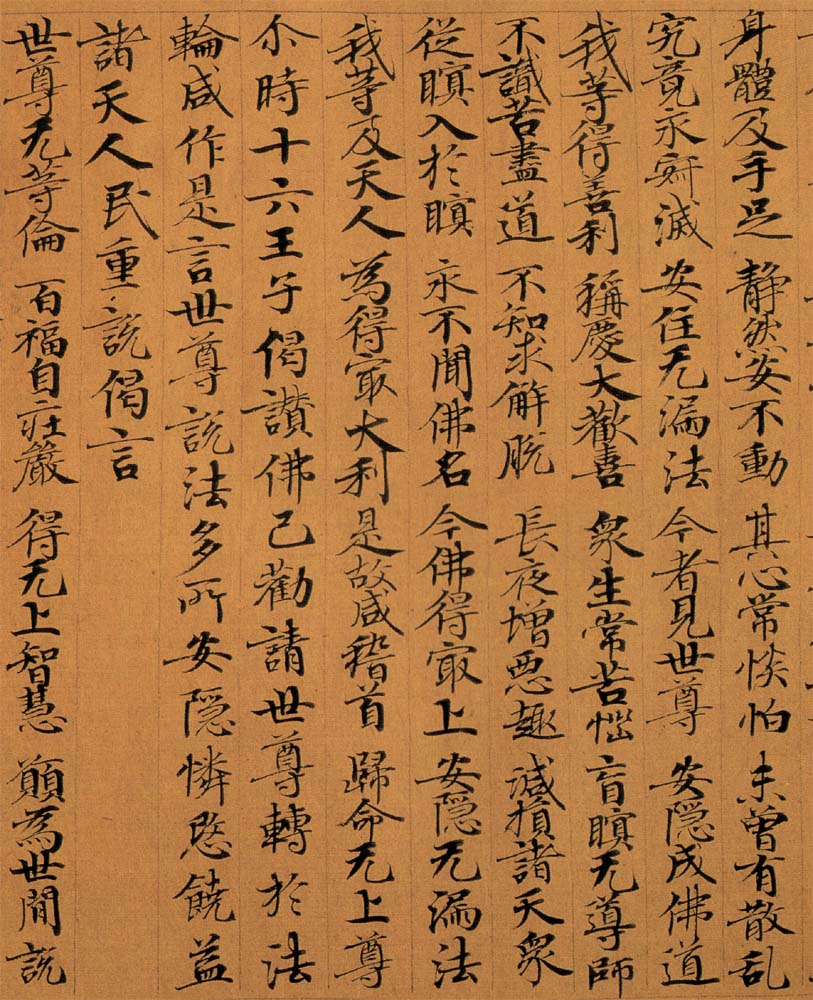 身體及手足 静然安不動 其心常惔怕 未曾有散乱
究竟永寂滅 安住无漏法 今者見世尊 安隱成佛道
我等得善利 稱慶大歡喜 衆生常苦惱 盲瞑无導師
不識苦盡道 不知求解脫 長夜增惡趣 減損諸天衆
從瞑入於瞑 永不聞佛名 今佛得冣上 安隱无漏法
我等及天人 為得冣大利 是故咸稽首 歸命无上尊
尒時十六王子偈讚佛已勸請世尊轉於法
輪咸作是言世尊說法多所安隱憐愍饒益
諸天人民重說偈言
世尊无等倫 百福自莊嚴 得无上智慧 願為世間說